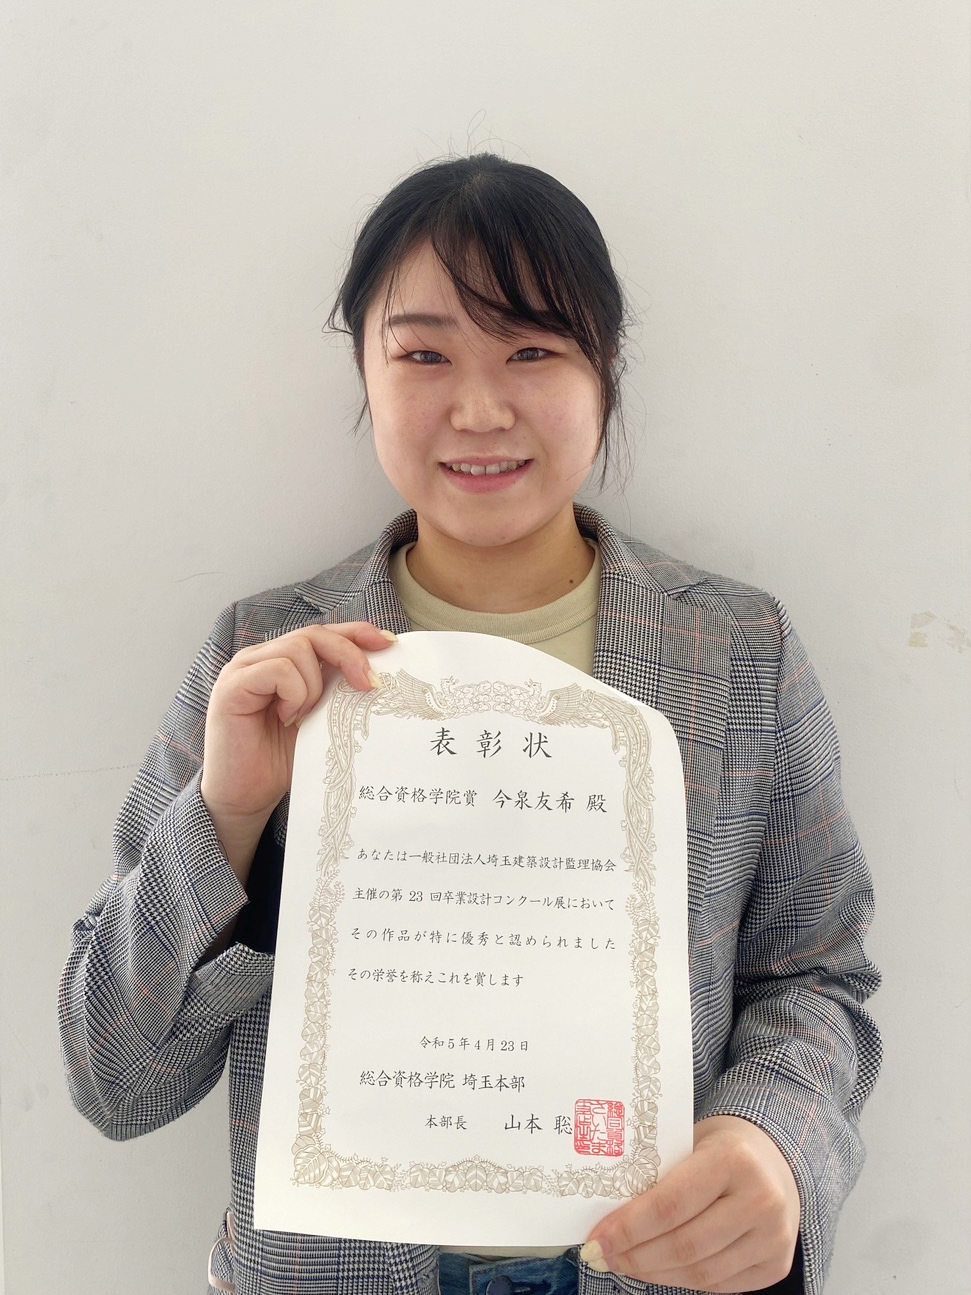 表彰状
総合資格学院賞 今泉友希 殿
あなたは一般社団法人埼玉建築設計監理協会
主催の第 23 回卒業設計コンクール展において
その作品が特に優秀と認められました
その栄誉を称えこれを賞します
令和5年4月23日
総合資格学院 埼玉本部
本部長 山本 聡